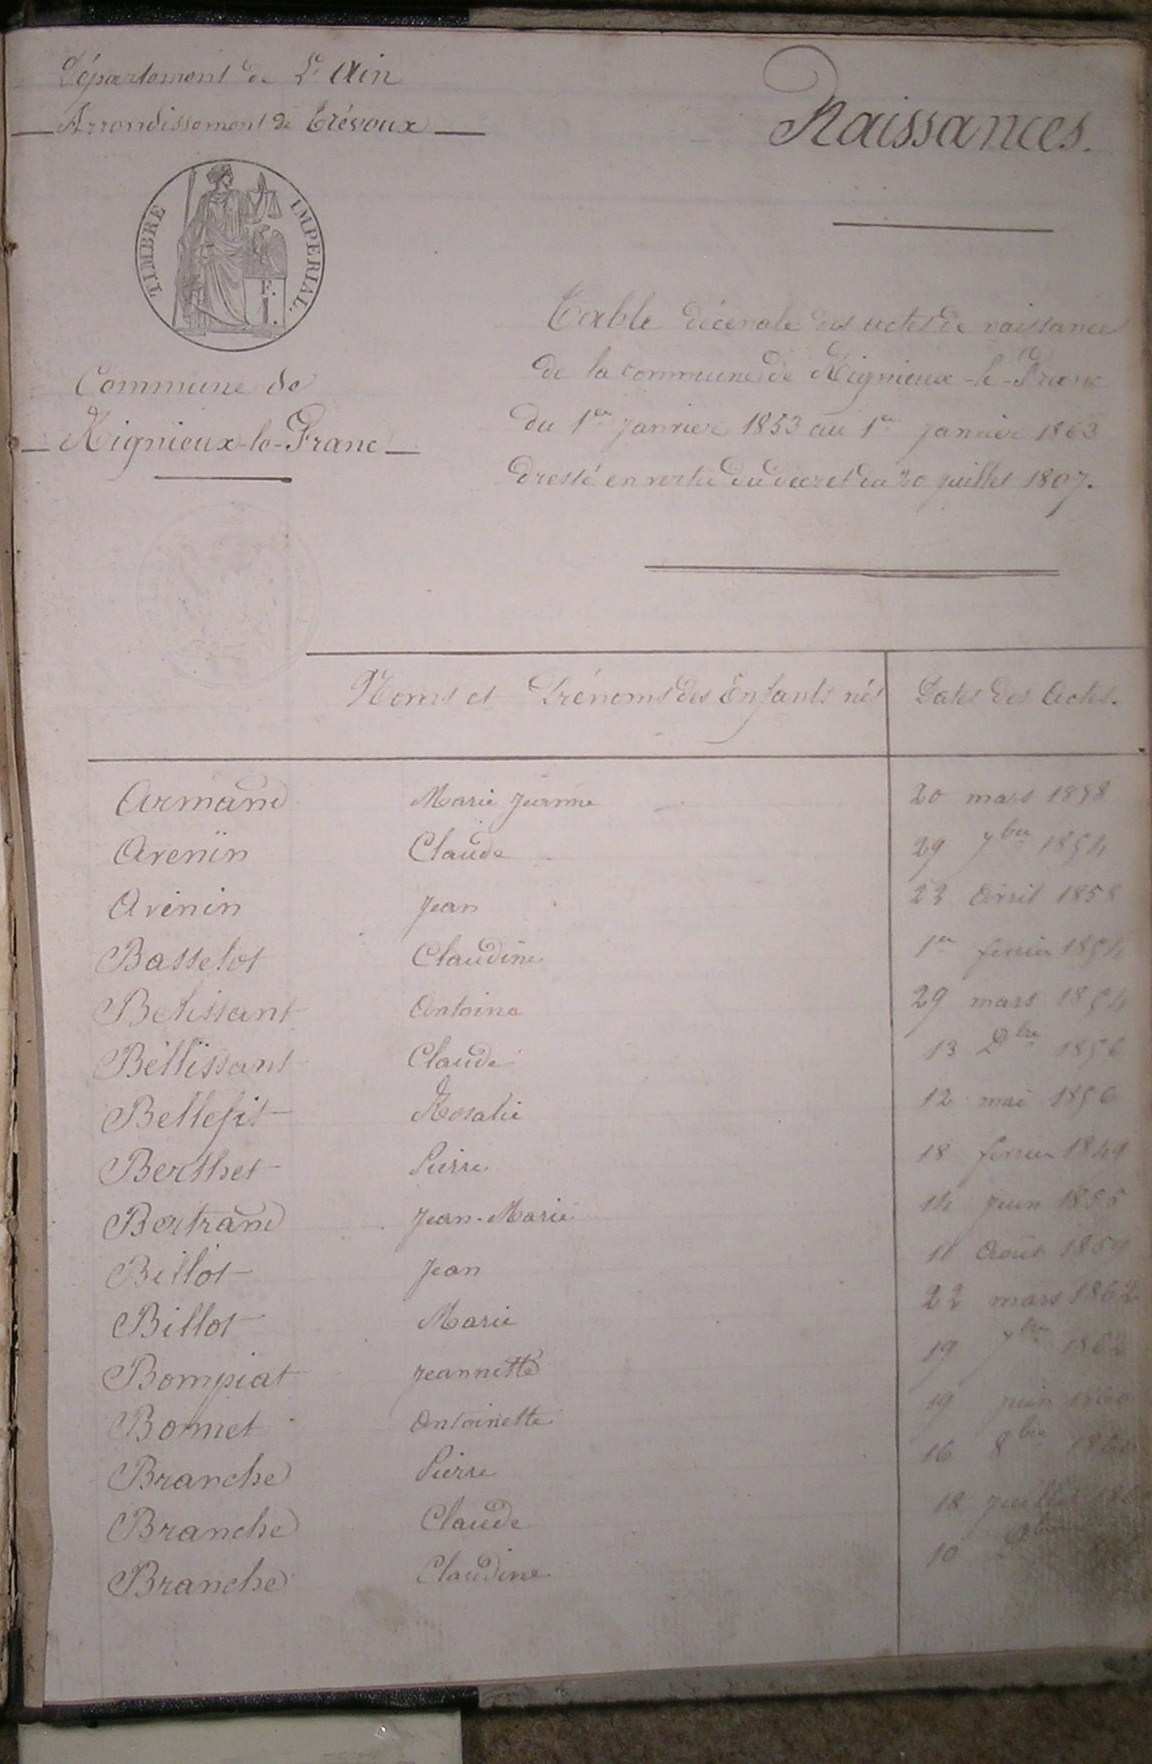 Département de L'Ain
Arrondissement de Trévoux
Naissances.
TIMBRE IMPERIAL
F. I.
Commune de
Rignieux-le-Franc
Table décenale des actes de naissances
de la commune de Rignieux-le-Franc
du 1er Janvier 1853 au 1er Janvier 1863
dressé en vertu du décret du 20 juillet 1807.
Noms et Prénoms des Enfants nés Dates des Actes.
Armand Marie Jeanne 20 mars 1858
Avenin Claude 29 7bre 1854
Avenin Jean 23 Avril 1858
Basselot Claudine 1er fevrier 1854
Betissant Antoine 29 mars 1854
Bettissant Claude 13 1856
Bellefit Rosalie 12 mai 1856
Berthet Pierre 18 fevrier
Bertrand Jean-Marie 14 Juin 1855
Billot Jean 11 Août 1859
Billot Marie 22 mars 1862
Bompiat Jeannette 19 7bre 1862
Bonnet Antoinette 19 juin 1860
Branche Pierre 16 8bre
Branche Claude 18 Juillet
Branche Claudine 10